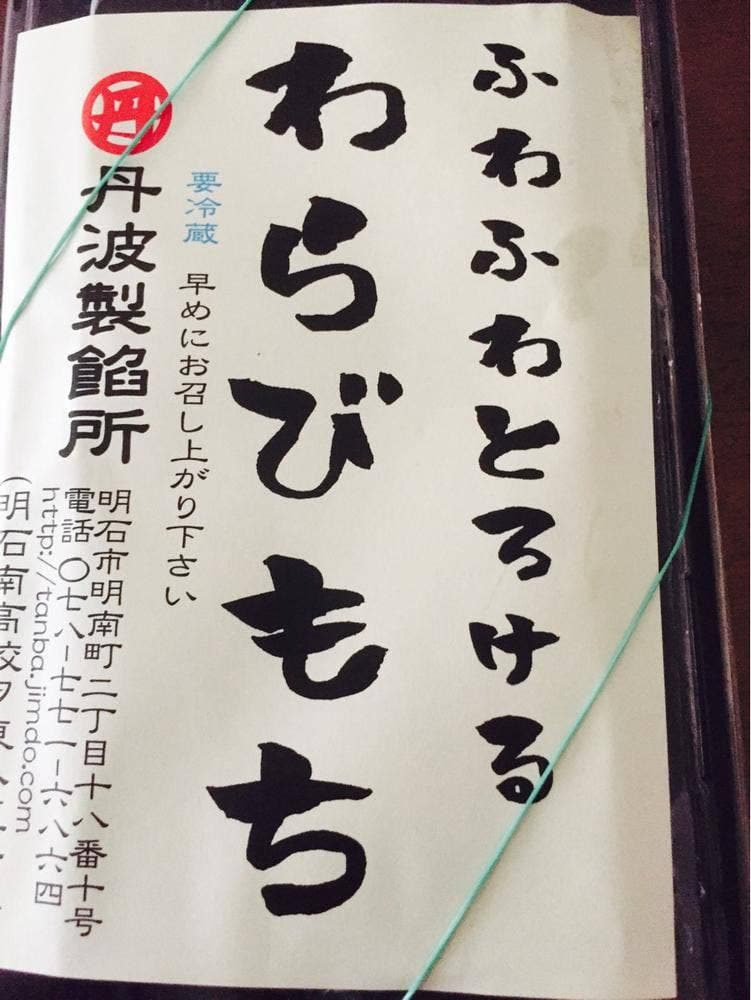 ふわふわとろける
わらびもち
要冷蔵
早めにお召し上がり下さい
丹
丹波製餡所
明石市明南町二丁目十八番十号
電話 〇七八-七七一-六八六四
http://tanba.jimdo.com
(明石南高校